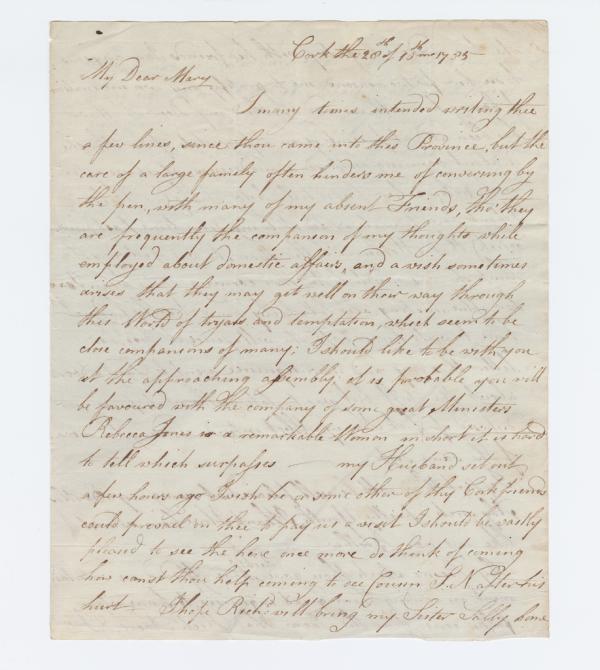 Cork the 28th of 1st mo 1785
My Dear Mary
I many times intended writing thee
a few lines, since thou came into this Province, but the
care of a large family often hinders me of conversing by
the pen, with many of my absent Friends, tho' they
are frequently the companion of my thoughts while
employed about domestic affairs, and a wish sometimes
arises that they may get well on their way through
this World of tryals and temptation, which seem to be
close companions of many; I should like to be with you
at the approaching assembly, it is probable you will
be favoured with the company of some great Ministers
Rebecca Jones is a remarkable Woman in short it is hard
to tell which surpasses — my Husband set out
a few hours ago I wish he or some other of thy Cork friends
could prevail on thee to pay us a visit I should be vastly
pleased to see the here once more do think of coming
how canst thou help coming to see Cousin S. N after his
hurt I hope Richd. will bring my Sister Sally home